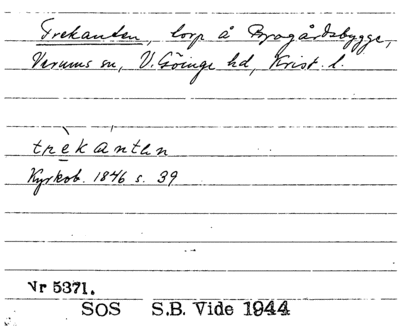 Trekanten, torp å Brogårdsbygge,
Verums sn, V. Göinge hd, Krist. l.
trèkántn
Kyrkob. 1846 s. 39
Nr 5371.
SOS S.B. Vide 1944